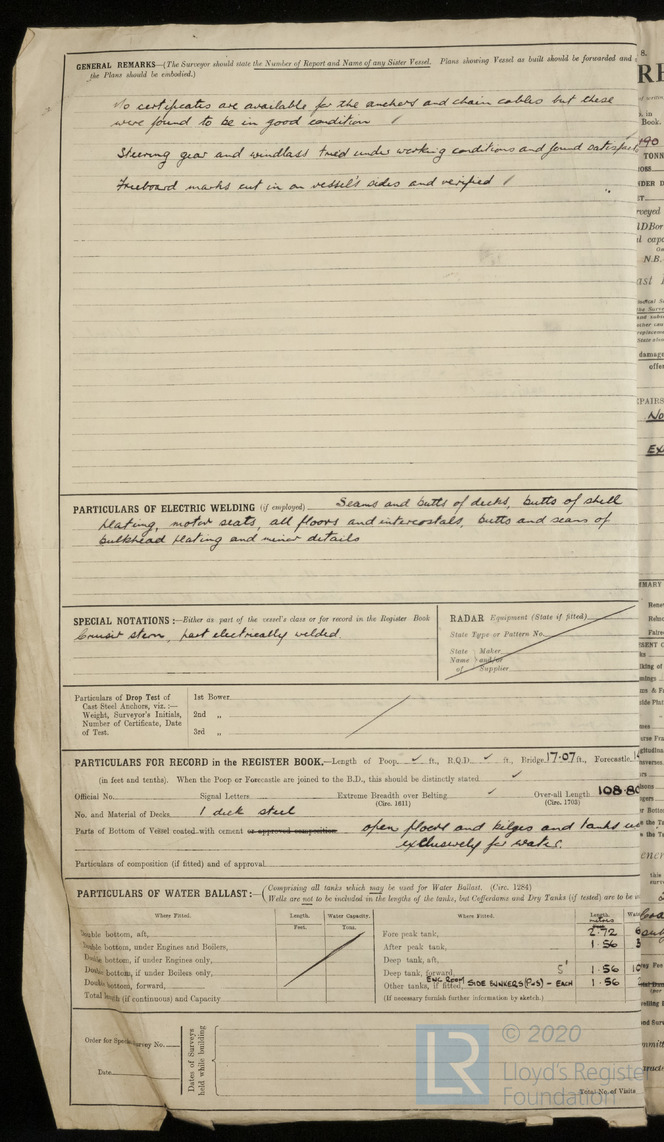 GENERAL REMARKS—(The Surveyor should state the Number of Report and Name of any Sister Vessel. Plans showing Vessel as built should be forwarded and
the Plans should be embodied.)
No certificates are available for the anchors and chain cables but these
were found to be in good condition
Steering gear and windlass tried under working conditions and found
Freeboard marks cut in on vessel's sides and verified
PARTICULARS OF ELECTRIC WELDING (if employed) Seams and butts of decks, butts of shell
plating, motor seats, all floors and intercostals, butts and seams of
bulkhead plating and minor details
SPECIAL NOTATIONS:—Either as part of the vessel's class or for record in the Register Book
Cruiser stern, part electrically welded.
RADAR Equipment (State if fitted)
State Type or Pattern No.
State Maker
Name and/or
of Supplier
Particulars of Drop Test of
Cast Steel Anchors, viz.:—
Weight, Surveyor's Initials,
Number of Certificate, Date
of Test.
1st Bower
2nd „
3rd „
PARTICULARS FOR RECORD in the REGISTER BOOK.—Length of Poop ✓ ft., R.Q.D. ✓ ft., Bridge 17·07 ft., Forecastle
(in feet and tenths). When the Poop or Forecastle are joined to the B.D., this should be distinctly stated ✓
Official No. Signal Letters Extreme Breadth over Belting ✓ Over-all Length 108·80
(Circ. 1611) (Circ. 1703)
No. and Material of Decks 1 deck steel
Parts of Bottom of Vessel coated with cement or approved composition open floors and bilges and tanks
exclusively for water.
Particulars of composition (if fitted) and of approval
PARTICULARS OF WATER BALLAST:— Comprising all tanks which may be used for Water Ballast. (Circ. 1284)
Wells are not to be included in the lengths of the tanks, but Cofferdams and Dry Tanks (if tested) are to be
Where Fitted. Length. Water Capacity. Where Fitted. Length.
Feet. Tons. meters
Double bottom, aft, Fore peak tank, 2·72
Double bottom, under Engines and Boilers, After peak tank, 1·56
Double bottom, if under Engines only, Deep tank, aft,
Double bottom, if under Boilers only, Deep tank, forward, 1·56
Double bottom, forward, Other tanks, if fitted, ENG ROOM SIDE BUNKERS (P&S) - EACH 1·56
Total length (if continuous) and Capacity (If necessary furnish further information by sketch.)
Order for Special Survey No.
Date
Dates of Surveys
held while building
Total No. of Visits
LR
© 2020
Lloyd's Register
Foundation